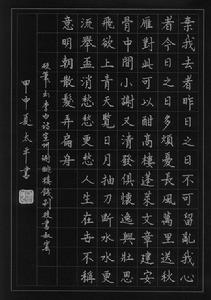 棄我去者昨日之日不可留亂我心
者今日之日多煩憂長風萬里送秋
雁對此可以酣高樓蓬萊文章建安
骨中間小謝又清發俱懷逸興壯思
飛欲上青天覽日月抽刀斷水水更
流舉盃消愁愁更愁人生在世不稱
意明朝散髮弄扁舟
硬筆書李白詩宣州謝朓樓餞別校書叔雲
甲申夏太平書